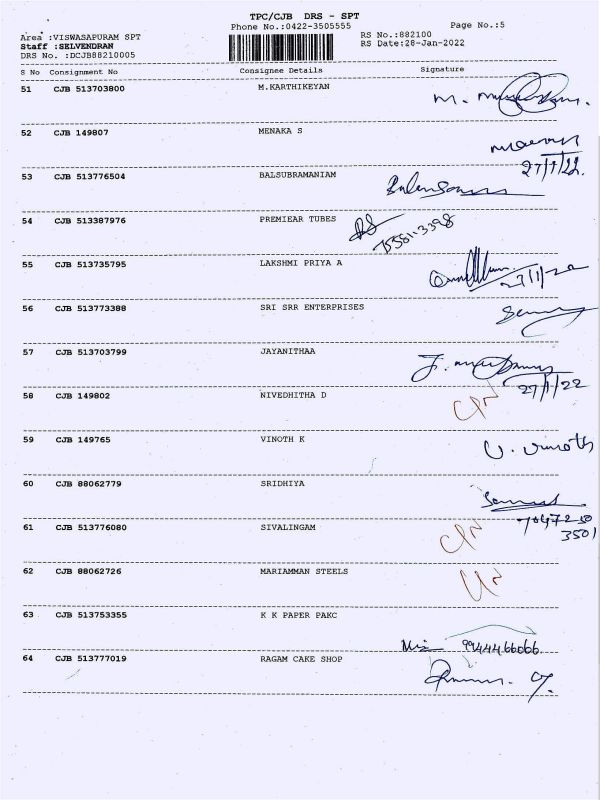 TPC/CJB DRS - SPT
Phone No.:0422-3505555
Page No.:5
Area :VISWASAPURAM SPT
RS No.:882100
Staff :SELVENDRAN
RS Date:28-Jan-2022
DRS No. :DCJB88210005
S No Consignment No Consignee Details Signature
51 CJB 513703800 M.KARTHIKEYAN
52 CJB 149807 MENAKA S
27/1/22.
53 CJB 513776504 BALSUBRAMANIAM
54 CJB 513387976 PREMIEAR TUBES
55 CJB 513735795 LAKSHMI PRIYA A
27/1/22
56 CJB 513773388 SRI SRR ENTERPRISES
57 CJB 513703799 JAYANITHAA
27/1/22
58 CJB 149802 NIVEDHITHA D
59 CJB 149765 VINOTH K
V. Vinoth
60 CJB 88062779 SRIDHIYA
61 CJB 513776080 SIVALINGAM
62 CJB 88062726 MARIAMMAN STEELS
63 CJB 513753355 K K PAPER PAKC
9944466066
64 CJB 513777019 RAGAM CAKE SHOP